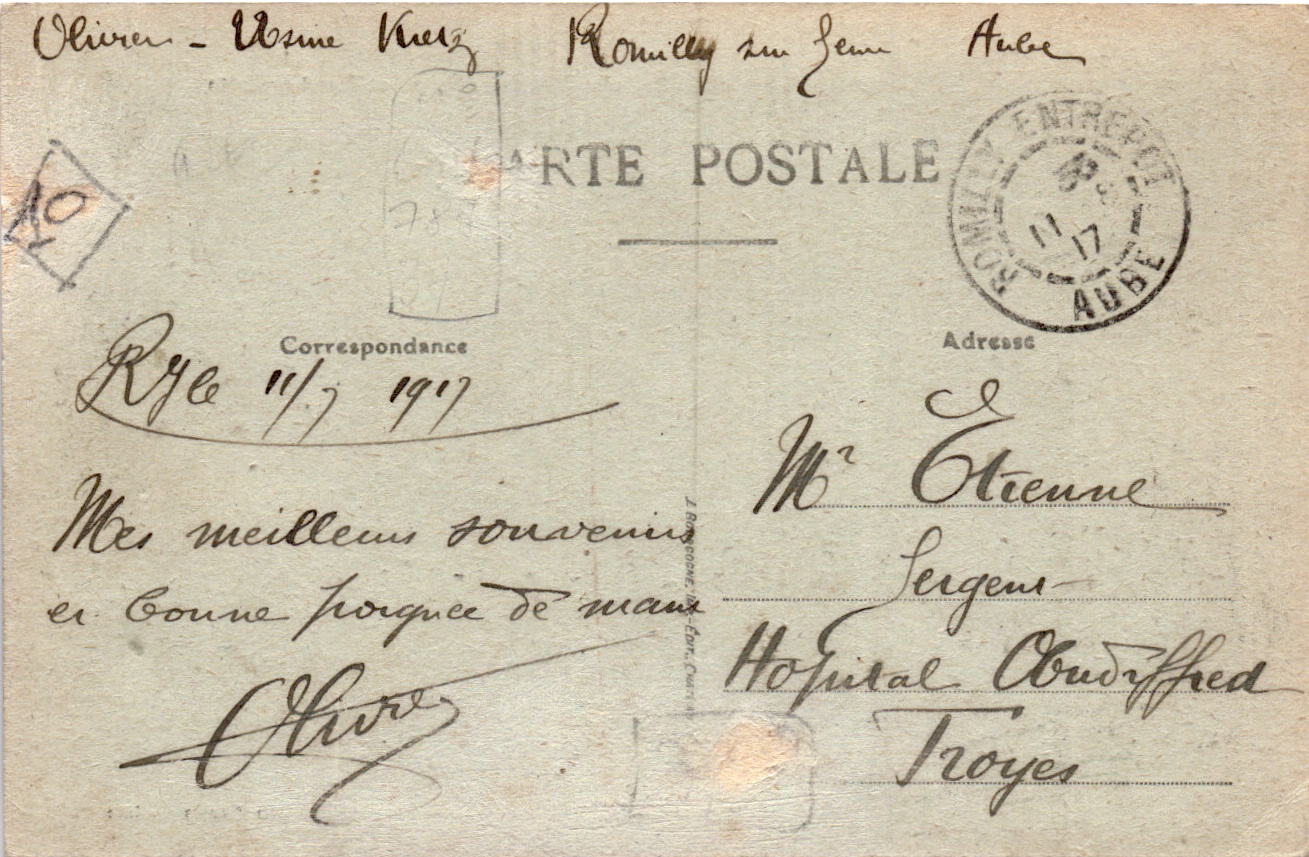 Olivier - Usine Kretz Romilly sur Seine Aube
CARTE POSTALE
ROMILLY ENTREPOT
11 17
AUBE
10
78
Correspondance
Adresse
11/7 1917
Mes meilleurs souvenirs
et bonne poignée de main
Olivier
Mr Etienne
Sergent
Hopital Audiffred
Troyes
J. BOURGOGNE, IMP.-ÉDIT.